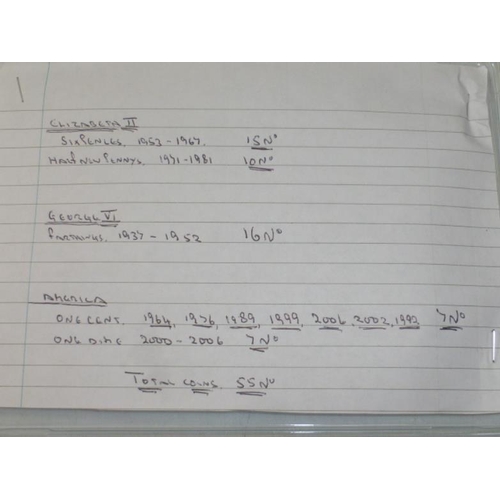 ELIZABETH II
SIXPENCES. 1953 - 1967. 15 Nº
HALF NEW PENNYS. 1971 - 1981 10 Nº
GEORGE VI
FARTHINGS. 1937 - 1952 16 Nº
AMERICA
ONE CENT. 1964, 1976, 1989, 1999, 2006, 2002, 1992 7 Nº
ONE DIME 2000 - 2006 7 Nº
TOTAL COINS. 55 Nº